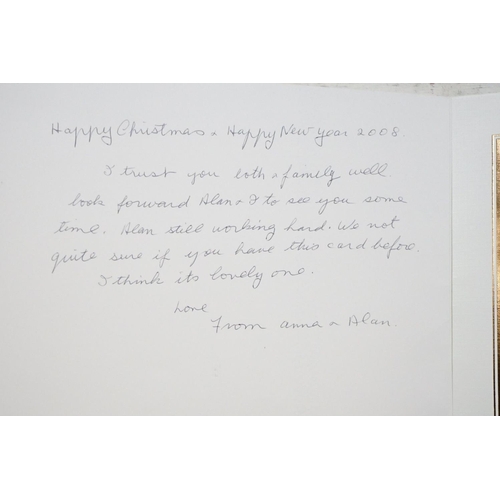 Happy Christmas & Happy New Year 2008.
I trust you both & family well.
look forward Alan & I to see you some
time. Alan still working hard. We not
quite sure if you have this card before.
I think its lovely one.
Love
From anna & Alan.